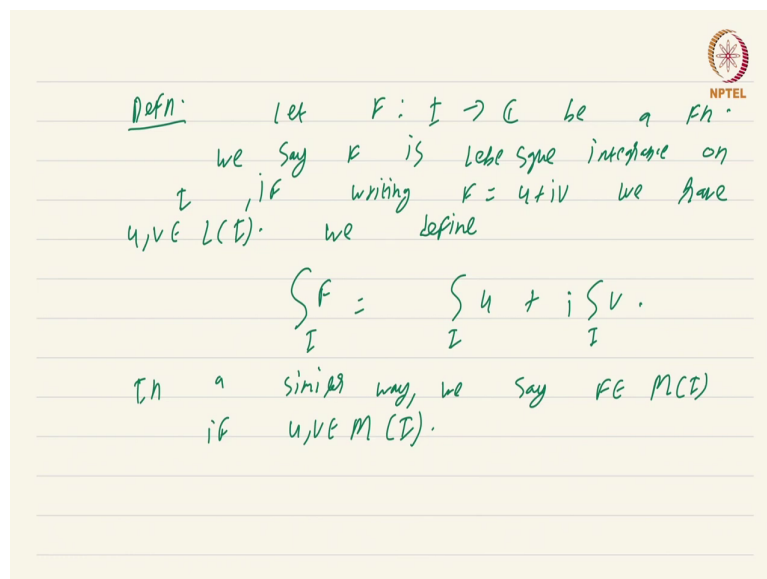 NPTEL
Defn: Let F : I → ℂ be a Fn.
we say F is Lebesgue integrable on
I, if writing F = u+iv we have
u,v ∈ L(I). we define
∫_I F = ∫_I u + i ∫_I v.
In a similar way, we say F ∈ M(I)
if u,v ∈ M(I).